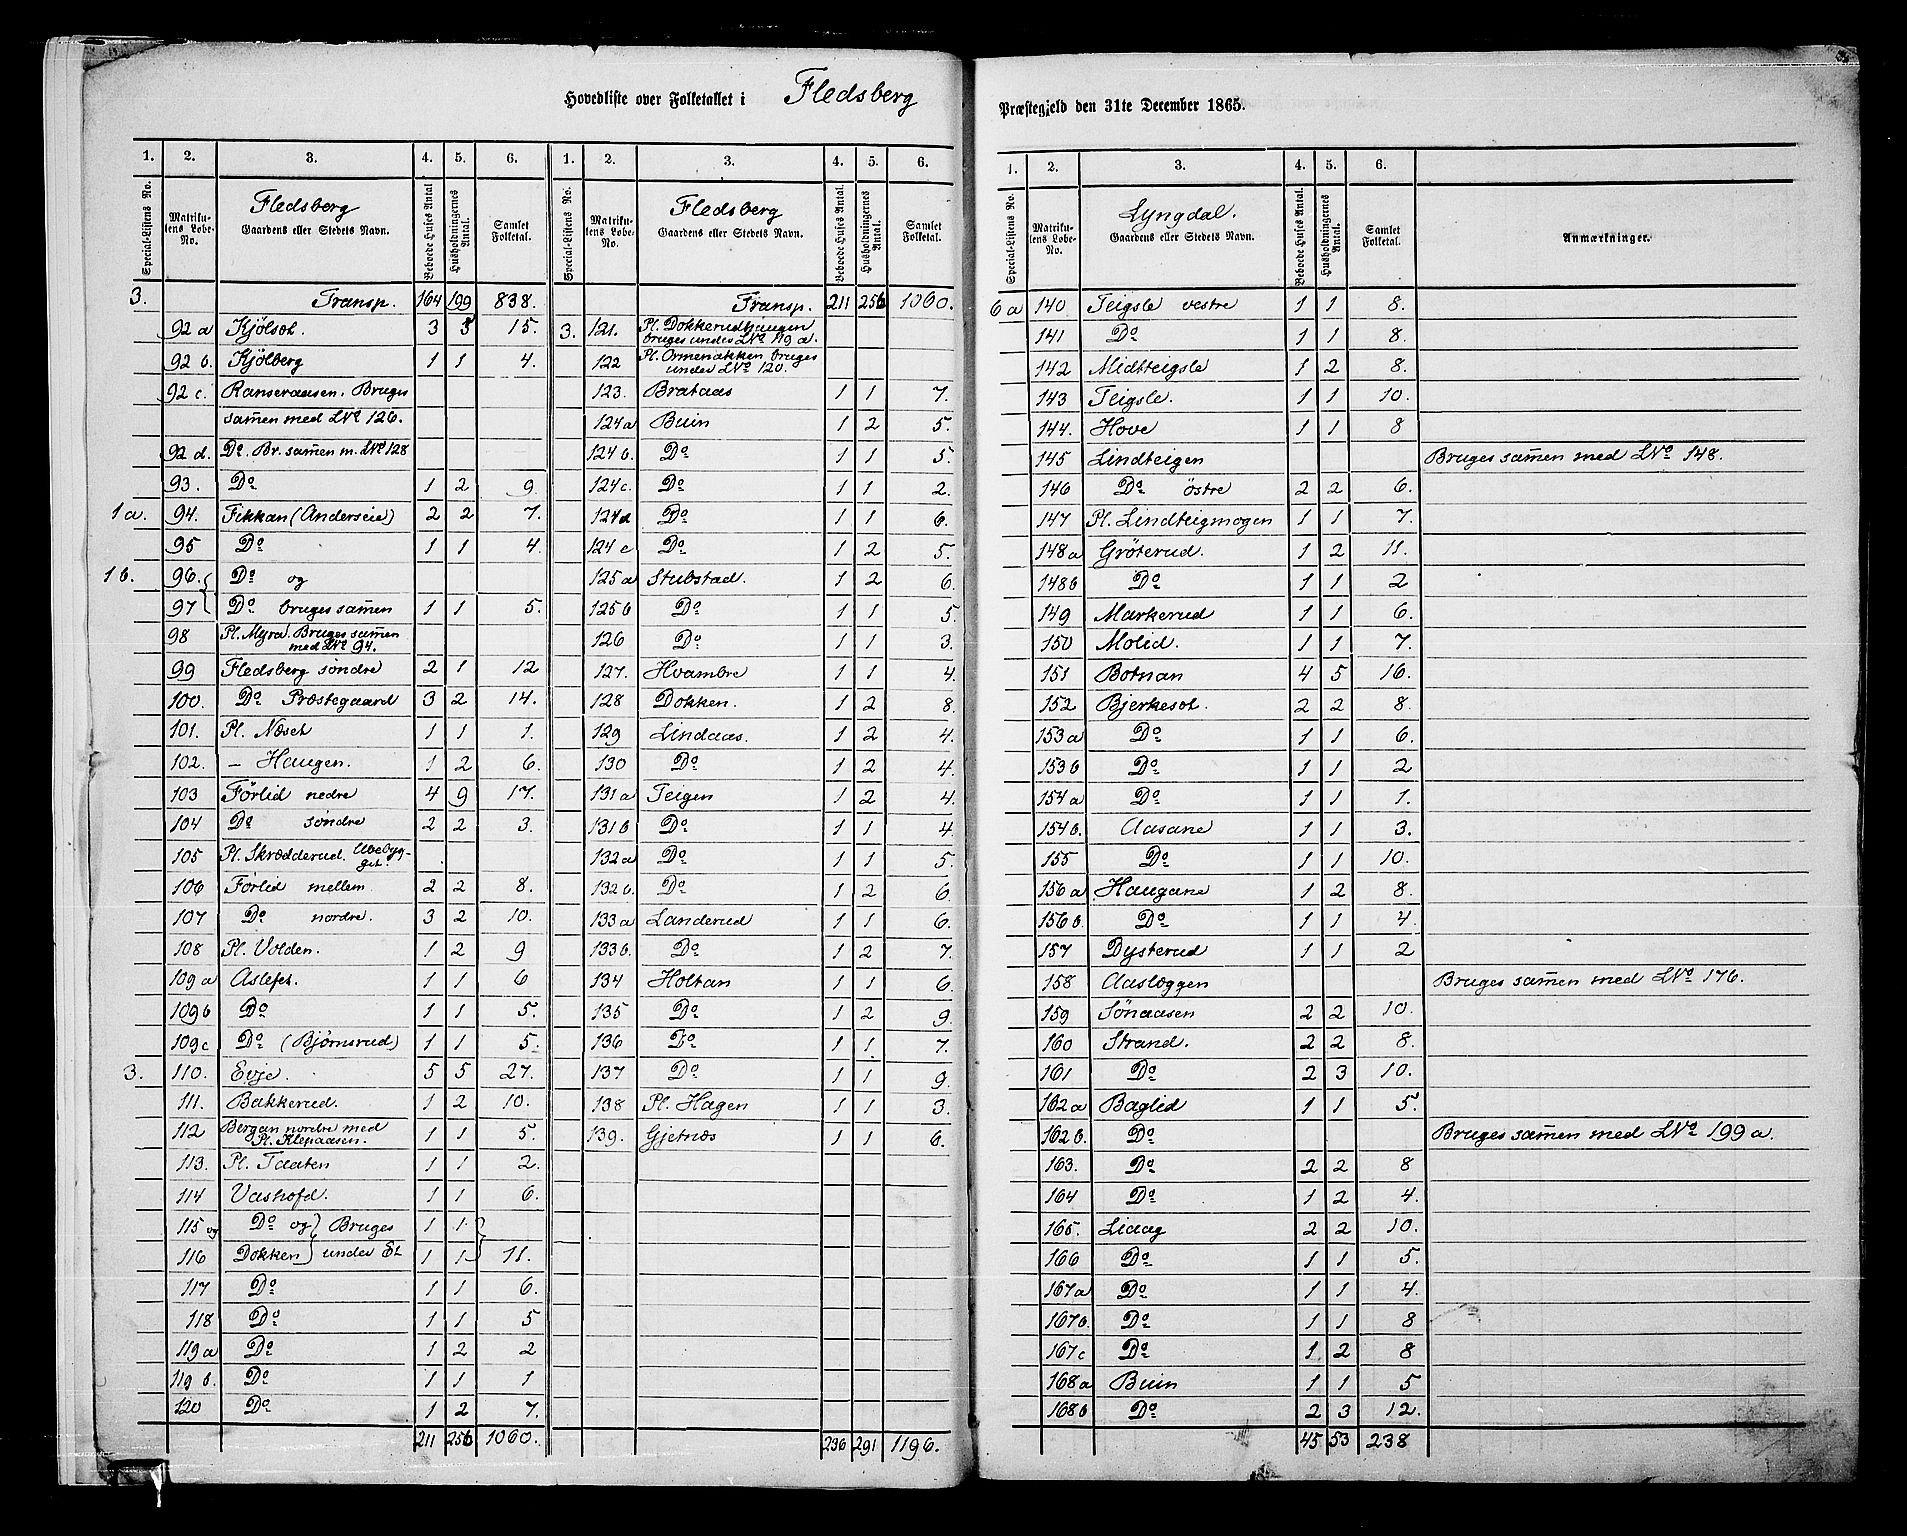 Hovedliste over Folketallet i Fledsberg
Præstegjeld den 31te December 1865.
1. 2. 3. 4. 5. 6.
Special-Listens No. Matrikulens Løbe-No. Fledsberg Gaardens eller Stedets Navn. Beboede Huses Antal Husholdningernes Antal. Samlet Folketal.
3. Transp. 164 199 838.
92 a Kjölset. 3 3 15.
92 b. Kjölberg 1 1 4.
92 c. Ranseraasen. Bruges
samen med LNo 126.
92 d. Do. Br. samen m. LNo 128
93. Do 1 2 9.
1 a. 94. Fikkan (Anderseie) 2 2 7.
95 Do 1 1 4.
1 b. 96. Do og
97 Do bruges samen 1 1 5.
98 Pl. Myra. Bruges samen
med LNo 94.
99 Fledsberg søndre 2 1 12
100. Do Præstegaard 3 2 14.
101. Pl. Næset 1 1 1.
102. – Haugen. 1 2 6.
103 Førlid nedre 4 9 17.
104 Do søndre 2 2 3.
105 Pl. Skrædderud. Ubebyg-
get.
106 Førlid mellem 2 2 8.
107 Do nordre. 3 2 10.
108 Pl. Volden. 1 2 9
109 a Aslefet. 1 1 6
109 b Do 1 1 5.
109 c Do (Bjørnsrud) 1 1 5.
3. 110. Evje. 5 5 27.
111. Bakkerud. 1 2 10.
112 Bergan nordre med
Pl. Klepaasen. 1 1 5.
113. Pl. Taaten 1 1 2.
114 Vashofd. 1 1 6.
115 og Do og Bruges 1 1
116 Dokken under Et 1 1 11.
117 Do 1 1 6.
118 Do 1 1 5
119 a Do 1 2 2
119 b. Do 1 1 1
120 Do 1 2 7.
211 256 1060.
1. 2. 3. 4. 5. 6.
Special-Listens No. Matrikulens Løbe-No. Fledsberg Gaardens eller Stedets Navn. Beboede Huses Antal. Husholdningernes Antal. Samlet Folketal.
Transp. 211 256 1060.
3. 121. Pl. Dokkerudhaugen
bruges under LNo 119 a.
122 Pl. Ormenakken bruges
under LNo 120.
123. Brataas 1 1 7.
124 a Buin 1 2 5.
124 b. Do 1 1 5.
124 c. Do 1 1 2.
124 d Do 1 1 6.
124 e Do 1 2 5.
125 a Stubstad. 1 2 6.
125 b Do 1 1 5.
126 Do 1 1 3.
127. Hvambre 1 1 4.
128 Dokken. 1 2 8.
129 Lindaas. 1 2 4.
130 Do 1 2 4.
131 a Teigen 1 2 4.
131 b Do 1 1 4.
132 a Do 1 1 5.
132 b. Do 1 2 6.
133 a Landerud 1 1 6.
133 b. Do 1 2 7.
134 Holtan 1 1 6.
135 Do 1 2 9.
136 Do 1 1 7.
137 Do 1 1 9.
138 Pl. Hagen 1 1 3.
139. Gjetnæs 1 1 6.
236 291 1196.
1. 2. 3. 4. 5. 6.
Special-Listens No. Matrikulens Løbe-No. Lyngdal. Gaardens eller Stedets Navn. Beboede Huses Antal. Husholdningernes Antal. Samlet Folketal. Anmærkninger.
6 a 140 Teigsle vestre 1 1 8.
141 Do 1 1 8.
142 Midtteigsle 1 2 8.
143 Teigsle. 1 1 10.
144. Hove 1 1 8
145 Lindteigen Bruges samen med LNo 148.
146 Do östre 2 2 6.
147 Pl. Lindteigmogen 1 1 7.
148 a Gröterud. 1 2 11.
148 b Do 1 1 2
149 Markerud 1 1 6.
150 Molid. 1 1 7.
151 Botnan 4 5 16.
152 Bjerkeset. 2 2 8.
153 a Do 1 1 6.
153 b Do 1 1 2
154 a Do 1 1 1.
154 b. Aasane 1 1 3.
155 Do 1 1 10.
156 a Haugane 1 2 8.
156 b. Do 1 1 4.
157 Dysterud 1 1 2
158 Aasleggen Bruges samen med LNo 176.
159 Sönaasen 2 2 10.
160 Strand. 2 2 8.
161 Do 2 3 10.
162 a Baglid 1 1 5.
162 b. Do Bruges samen med LNo 199 a.
163. Do 2 2 8
164 Do 1 2 4.
165. Lidag 2 2 10.
166 Do 1 1 5.
167 a Do 1 1 4.
167 b. Do 1 1 8
167 c Do 1 2 8
168 a Buin 1 1 5
168 b Do 2 3 12.
45 53 238